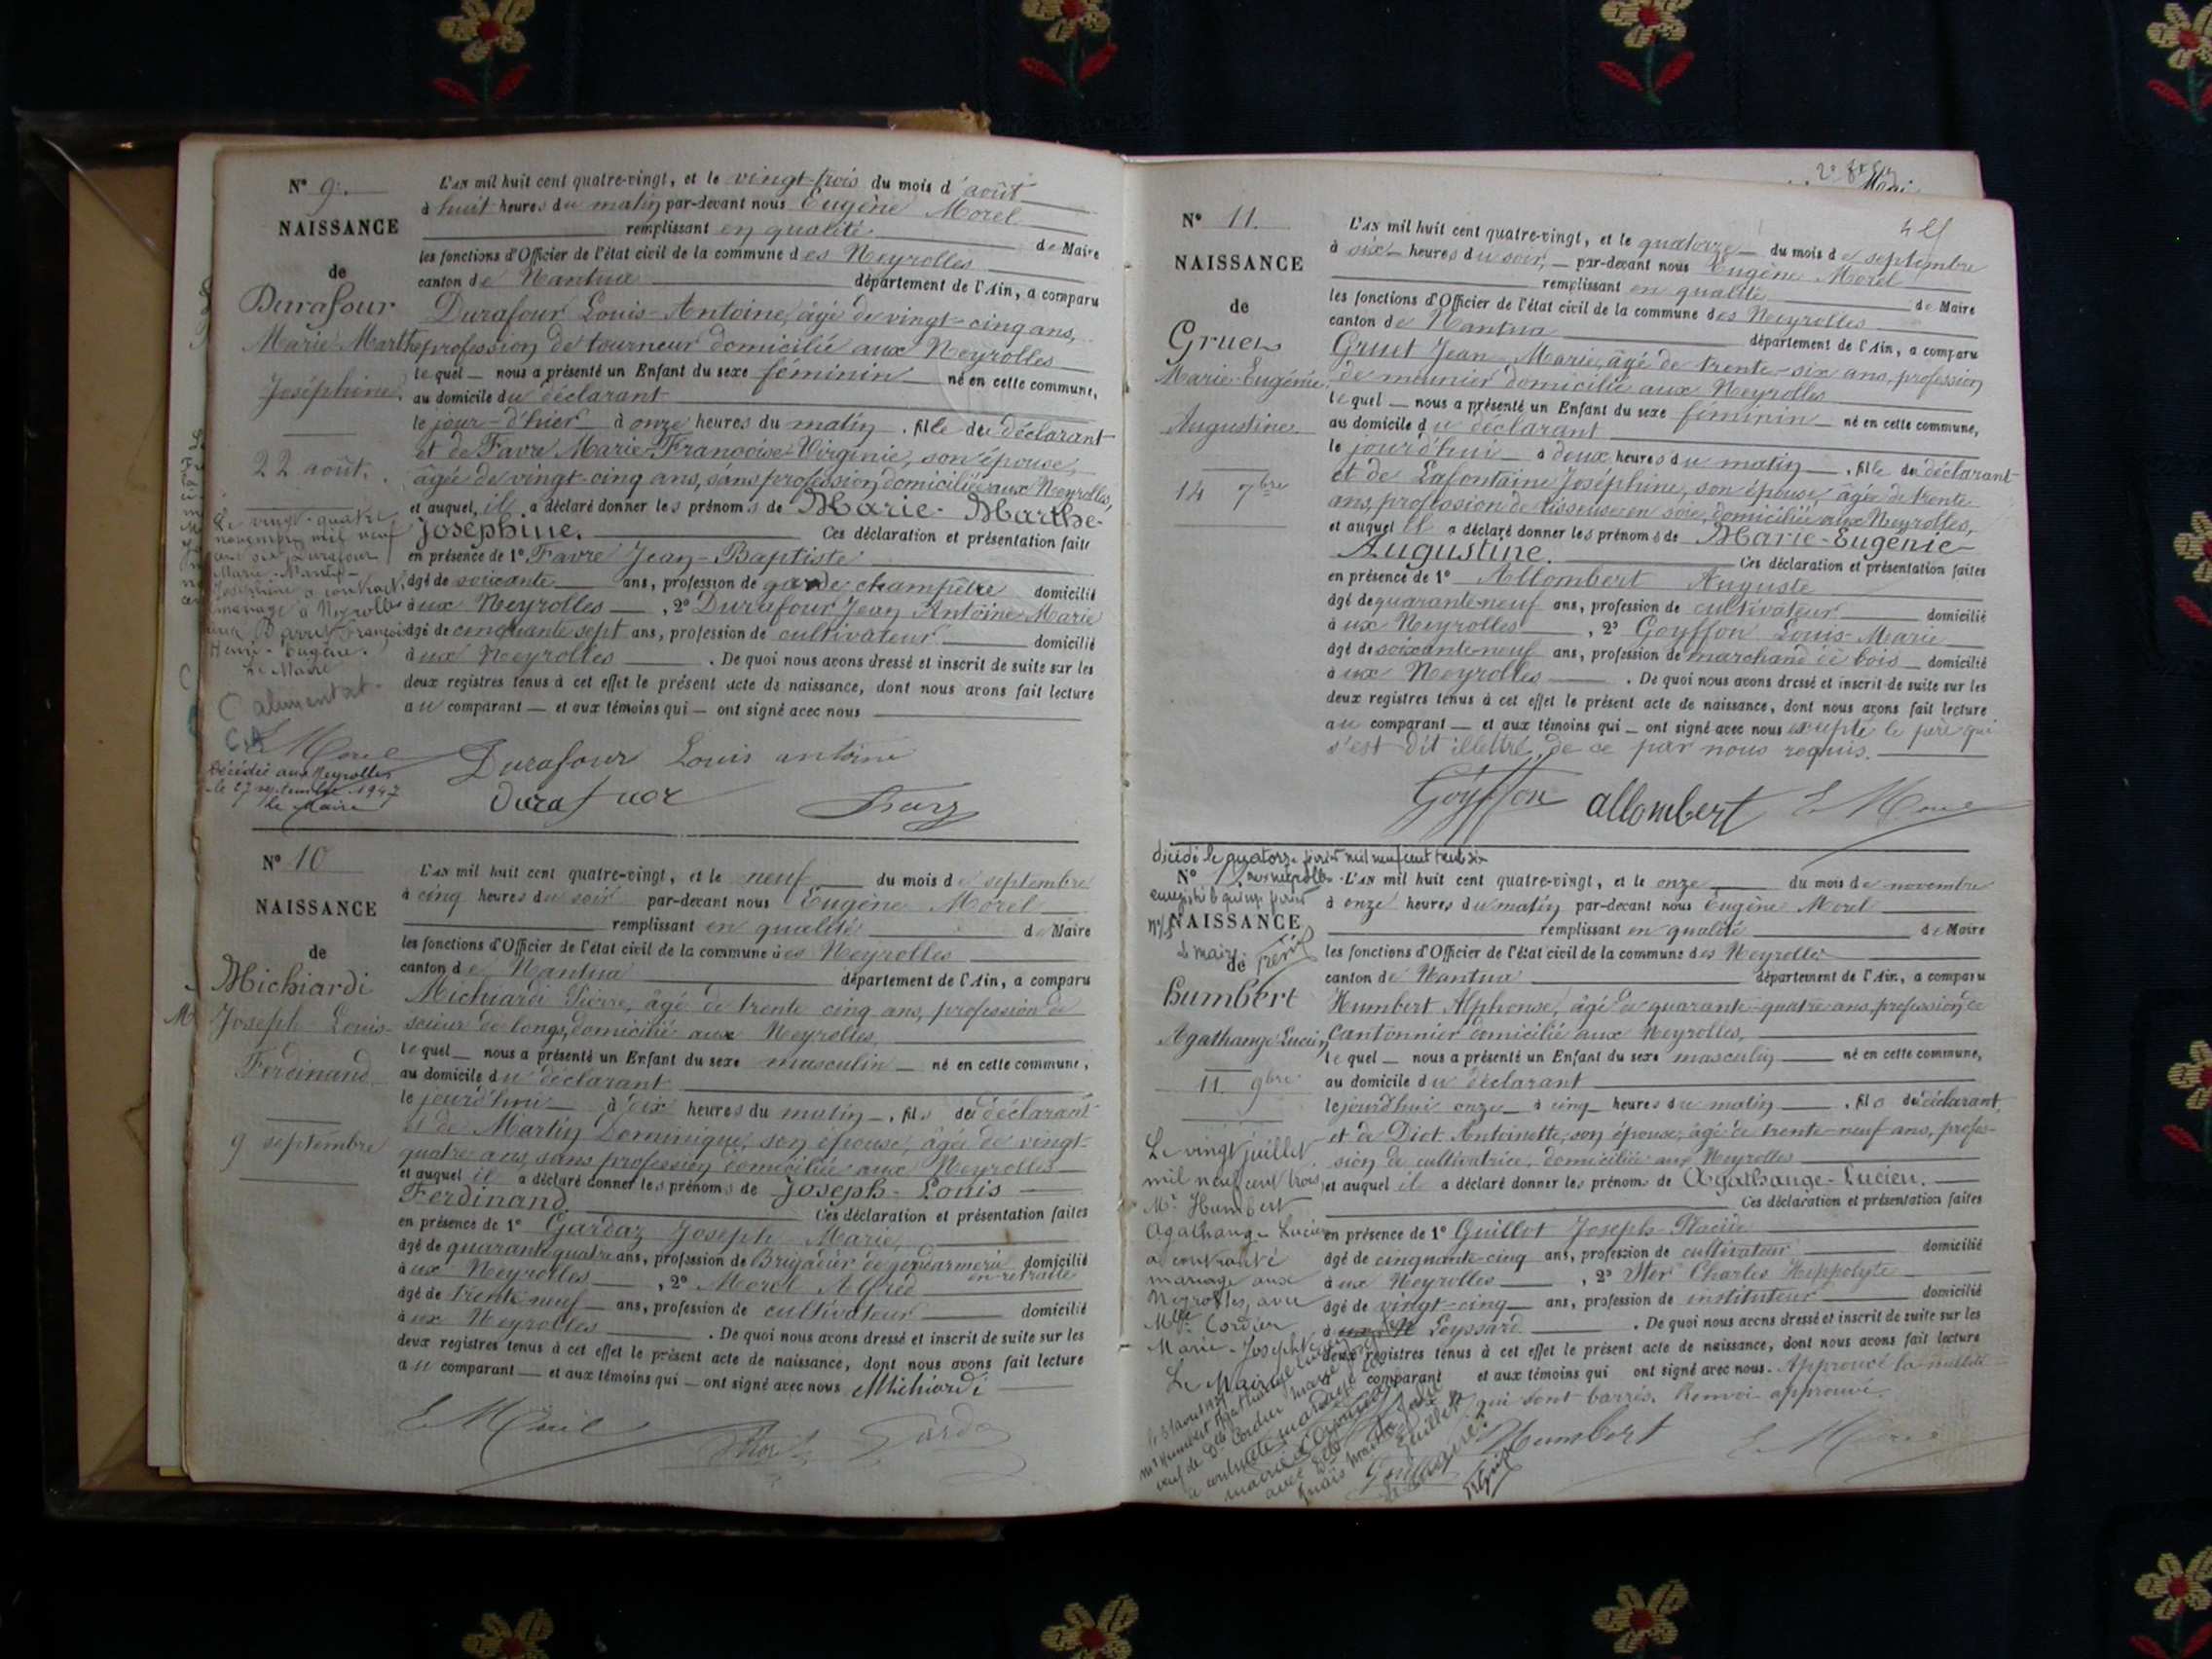 N° 9.
NAISSANCE
de
Durafour
Marie Marthe
Joséphine.
22 août.
Le vingt-quatre
novembre mil neuf
Durafour
Marie-Marthe-
Joséphine a contracté
mariage à Neyrolles
avec Barret François
Henri-Eugène.
Le Maire
E Morel
Décédée aux Neyrolles
le 27 septembre 1947
Le Maire
L'AN mil huit cent quatre-vingt, et le vingt-trois du mois d'août
à huit heures du matin par-devant nous Eugène Morel
remplissant en qualité de Maire
les fonctions d'Officier de l'état civil de la commune des Neyrolles
canton de Nantua département de l'Ain, a comparu
Durafour Louis-Antoine, âgé de vingt-cinq ans,
profession de tourneur domicilié aux Neyrolles
lequel nous a présenté un Enfant du sexe féminin né en cette commune,
au domicile du déclarant
le jour d'hier à onze heures du matin, fille du déclarant
et de Favre Marie-Françoise-Virginie, son épouse,
âgée de vingt-cinq ans, sans profession, domiciliée aux Neyrolles,
et auquel il a déclaré donner les prénoms de Marie-Marthe-
Joséphine. Ces déclaration et présentation faites
en présence de 1° Favre Jean-Baptiste
âgé de soixante ans, profession de garde champêtre domicilié
aux Neyrolles, 2° Durafour Jean Antoine Marie
âgé de cinquante sept ans, profession de cultivateur domicilié
aux Neyrolles. De quoi nous avons dressé et inscrit de suite sur les
deux registres tenus à cet effet le présent acte de naissance, dont nous avons fait lecture
au comparant et aux témoins qui ont signé avec nous
Durafour Louis antoine
Durafour
N° 10
NAISSANCE
de
Michiardi
Joseph-Louis-
Ferdinand.
9 septembre
L'AN mil huit cent quatre-vingt, et le neuf du mois de septembre
à cinq heures du soir par-devant nous Eugène Morel
remplissant en qualité de Maire
les fonctions d'Officier de l'état civil de la commune des Neyrolles
canton de Nantua département de l'Ain, a comparu
Michiardi Pierre, âgé de trente cinq ans, profession de
scieur de longs, domicilié aux Neyrolles,
lequel nous a présenté un Enfant du sexe masculin né en cette commune,
au domicile du déclarant
le jourd'hui à dix heures du matin, fils du déclarant
et de Martin Dominique, son épouse, âgée de vingt-
quatre ans, sans profession domiciliée aux Neyrolles
et auquel il a déclaré donner les prénoms de Joseph-Louis
Ferdinand Ces déclaration et présentation faites
en présence de 1° Gardaz Joseph Marie,
âgé de quarante quatre ans, profession de Brigadier de gendarmerie en retraite domicilié
aux Neyrolles, 2° Morel Alfred
âgé de trente neuf ans, profession de cultivateur domicilié
aux Neyrolles. De quoi nous avons dressé et inscrit de suite sur les
deux registres tenus à cet effet le présent acte de naissance, dont nous avons fait lecture
au comparant et aux témoins qui ont signé avec nous Michiardi
E Morel
N° 11.
NAISSANCE
de
Gruet
Marie-Eugénie
Augustine.
14 7bre
L'AN mil huit cent quatre-vingt, et le quatorze du mois de septembre
à six heures du soir, par-devant nous Eugène Morel
remplissant en qualité de Maire
les fonctions d'Officier de l'état civil de la commune des Neyrolles
canton de Nantua département de l'Ain, a comparu
Gruet Jean Marie, âgé de trente-six ans, profession
de meunier domicilié aux Neyrolles
lequel nous a présenté un Enfant du sexe féminin né en cette commune,
au domicile du déclarant
le jourd'hui à deux heures du matin, fille du déclarant
et de Lafontaine Joséphine, son épouse, âgée de trente
ans, profession de tisseuse en soie, domiciliée aux Neyrolles,
et auquel il a déclaré donner les prénoms de Marie-Eugénie-
Augustine. Ces déclaration et présentation faites
en présence de 1° Allombert Auguste
âgé de quarante-neuf ans, profession de cultivateur domicilié
aux Neyrolles, 2° Goyffon Louis-Marie
âgé de soixante-neuf ans, profession de marchand de bois domicilié
aux Neyrolles. De quoi nous avons dressé et inscrit de suite sur les
deux registres tenus à cet effet le présent acte de naissance, dont nous avons fait lecture
au comparant et aux témoins qui ont signé avec nous excepté le père qui
s'est dit illettré, de ce par nous requis.
Goyffon allombert E Morel
décédé le quatorze février mil neuf cent trente six
aux neyrolles
N°
NAISSANCE
de
Humbert
Agathange Lucien
11 9bre
Le vingt juillet
mil neuf cent trois,
Mr Humbert
Agathange Lucien
a contracté
mariage aux
Neyrolles, avec
Mlle Cordier
Marie-Josephte
Le Maire
L'AN mil huit cent quatre-vingt, et le onze du mois de novembre
à onze heures du matin par-devant nous Eugène Morel
remplissant en qualité de Maire
les fonctions d'Officier de l'état civil de la commune des Neyrolles
canton de Nantua département de l'Ain, a comparu
Humbert Alphonse, âgé de quarante-quatre ans, profession de
Cantonnier domicilié aux Neyrolles,
lequel nous a présenté un Enfant du sexe masculin né en cette commune,
au domicile du déclarant
le jourd'hui onze à cinq heures du matin, fils du déclarant,
et de Diot Antoinette, son épouse, âgée de trente-neuf ans, profes-
sion de cultivatrice, domiciliée aux Neyrolles
et auquel il a déclaré donner les prénoms de Agathange-Lucien.
Ces déclaration et présentation faites
en présence de 1° Guillot Joseph-Placide
âgé de cinquante-cinq ans, profession de cultivateur domicilié
aux Neyrolles, 2° Charles Hippolyte
âgé de vingt-cinq ans, profession de instituteur domicilié
à Leyssard. De quoi nous avons dressé et inscrit de suite sur les
deux registres tenus à cet effet le présent acte de naissance, dont nous avons fait lecture
comparant et aux témoins qui ont signé avec nous. Approuvé la nullité
qui sont barrés. Renvoi approuvé.
Humbert E Morel